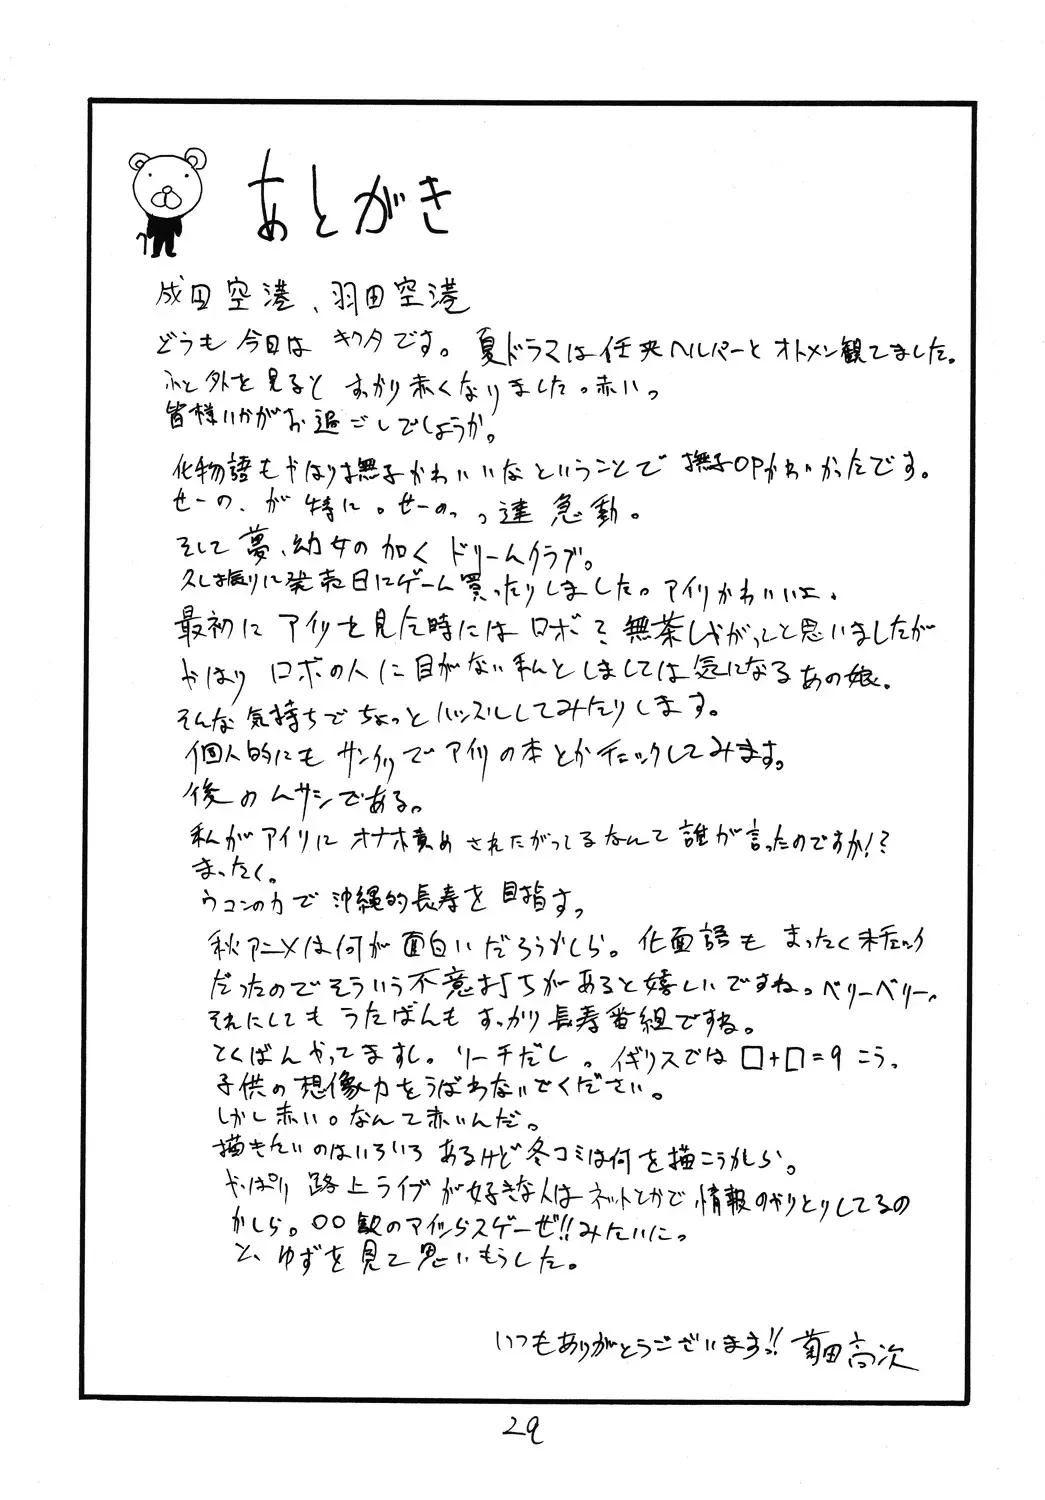 あとがき
成田空港、羽田空港
どうも今日は キクタです。夏ドラマは任侠ヘルパーとオトメン観てました。
ふと外を見ると すっかり赤くなりました。赤いっ
皆様いかがお過ごしでしょうか。
化物語もやはり撫子かわいいなということで 撫子OPかわいかったです。
せーの、が特に。せーのっっ達 急 動。
そして夢、幼女の如く ドリームクラブ。
久し振りに発売日にゲーム買ったりしました。アイリかわいいよ、
最初に アイリを見た時には ロボ?無茶しやがってと思いましたが
やはり ロボの人に目がない私としましては気になるあの娘。
そんな気持ちでちょっとハッスルしてみたりします。
個人的にも サンクリでアイリの本とかチェックしてみます。
後のムサシである。
私がアイリに オナホ責めされたがってるなんて 誰が言ったのですか!?
まったく。
ウコンの力で 沖縄的長寿を 目指すっ
秋アニメは何が 面白いだろうかしら。化物語も まったく未チェック
だったのでそういう不意打ちがあると嬉しいですね。ベリーベリー。
それにしても うたばんも すっかり長寿番組ですね。
とくばんやってますし。リーチだし。イギリスでは □+□=9 こう。
子供の想像力をうばわないでください。
しかし赤い。なんて赤いんだ。
描きたいのはいろいろ あるけど冬コミは何を描こうかしら。
やっぱり 路上ライブが好きな人は ネットとかで 情報のやりとりしてるの
かしら。○○駅のアイツらスゲーぜ!!みたいにっ
と、ゆずを見て思いもうした。
いつもありがとうございますっ!! 菊田高次
29